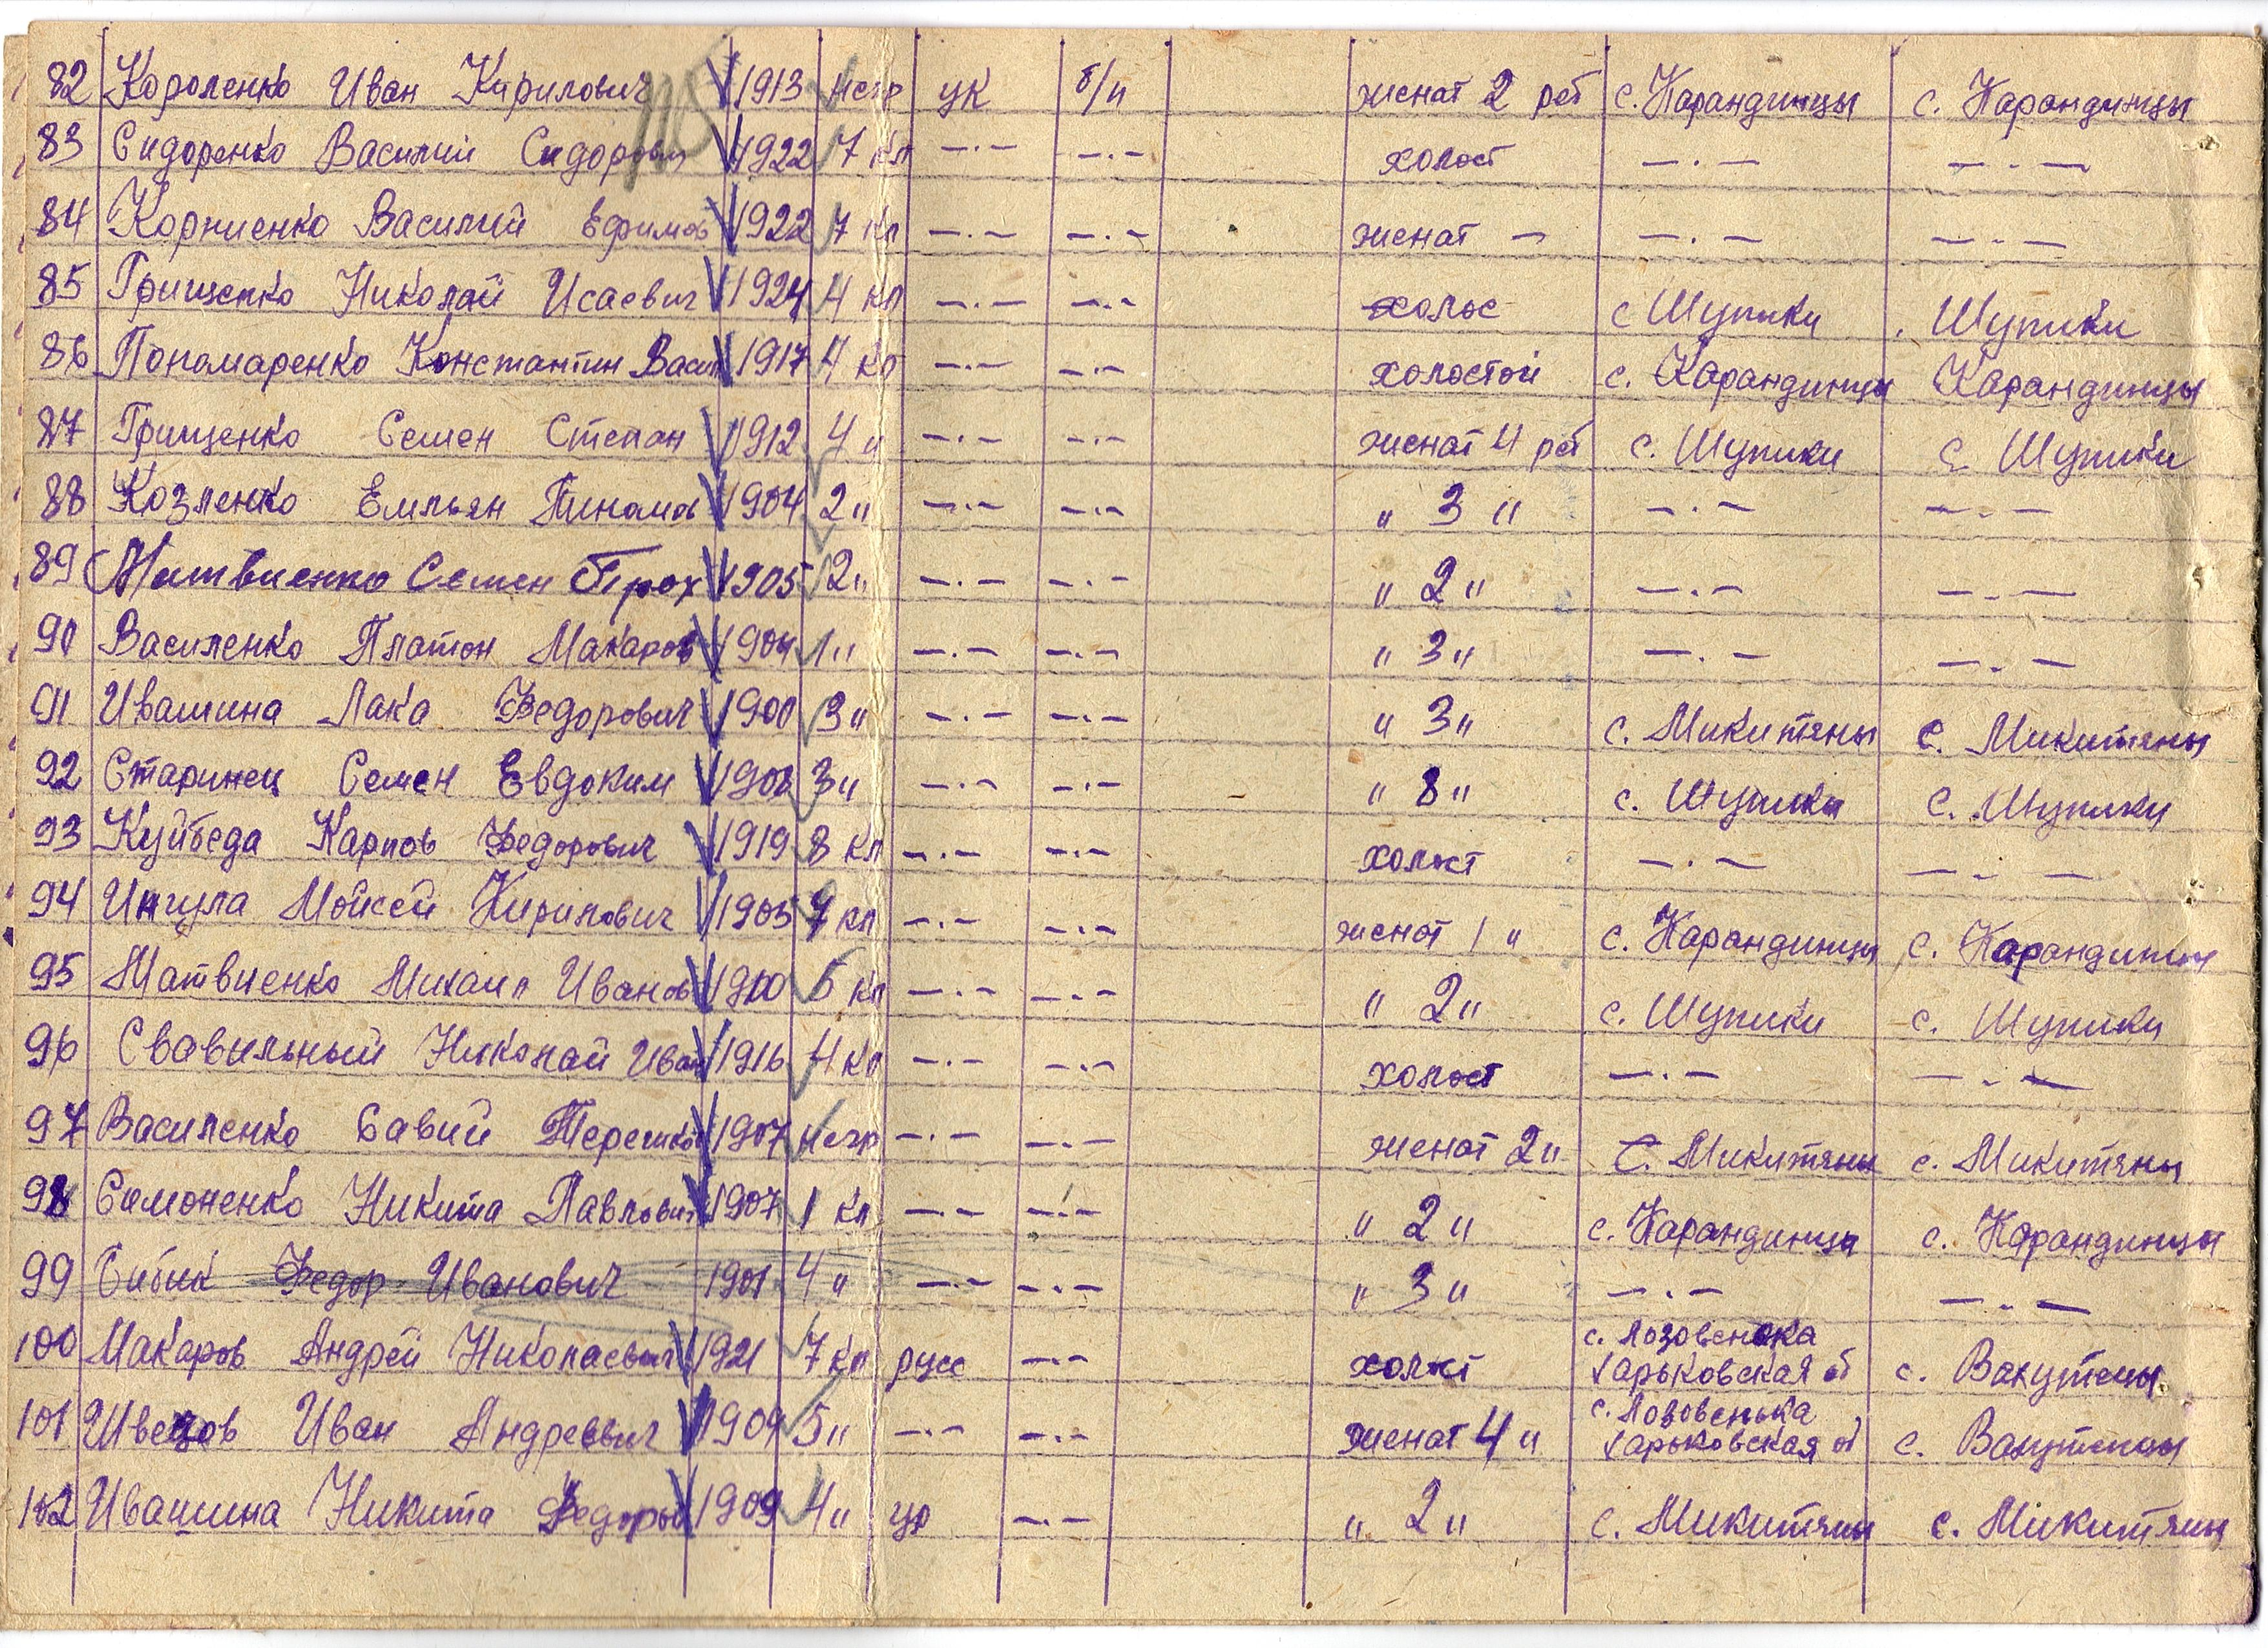 82 Короленко Иван Кирилович 1913 негр ук б/п женат 2 реб с. Карандинцы с. Карандинцы
83 Сидоренко Василий Сидорович 1922 7 кл —·— —·— холост —·— —·—
84 Корниенко Василий Ефимов 1922 7 кл —·— —·— женат — —·— —·—
85 Грищенко Николай Исаевич 1924 4 кл —·— —·— холос с Шупики Шупики
86 Пономаренко Константин Васил 1917 4 кл —·— —·— холостой с. Карандинцы Карандинцы
87 Грищенко Семен Степан 1912 4 " —·— —·— женат 4 реб с. Шупики с. Шупики
88 Козленко Емльян 1904 2 " —·— —·— " 3 " —·— —·—
89 Матвиенко Семен Трох 1905 2 " —·— —·— " 2 " —·— —·—
90 Василенко Платон Макаров 1904 1 " —·— —·— " 3 " —·— —·—
91 Ивашина Лака Федорович 1900 3 " —·— —·— " 3 " с. Микитяны с. Микитяны
92 Старинец Семен Евдоким 1908 3 " —·— —·— " 8 " с. Шупики с. Шупики
93 Куйбеда Карпов Федорович 1919 8 кл —·— —·— холост —·— —·—
94 Ингула Мойсей Кирилович 1903 7 кл —·— —·— женат 1 " с. Карандинцы с. Карандинцы
95 Матвиенко Михаил Иванов 1900 5 кл —·— —·— " 2 " с. Шупики с. Шупики
96 Свавильный Николай Иван 1916 4 кл —·— —·— холост —·— —·—
97 Василенко Савий Терешков 1907 негр —·— —·— женат 2 " с. Микитяны с. Микитяны
98 Самоненко Никита Павлович 1907 1 кл —·— —·— " 2 " с. Карандинцы с. Карандинцы
99 Сибик Федор Иванович 1901 4 " —·— —·— " 3 " —·— —·—
100 Макаров Андрей Николаевич 1921 7 кл русс —·— холост с. Лозовенька Харьковская об с.
101 Швецов Иван Андреевич 1909 5 " —·— —·— женат 4 " с. Лозовенька Харьковская об с.
102 Ивашина Никита Федоров 1909 4 " —·— " 2 " с. Микитяны с. Микитяны